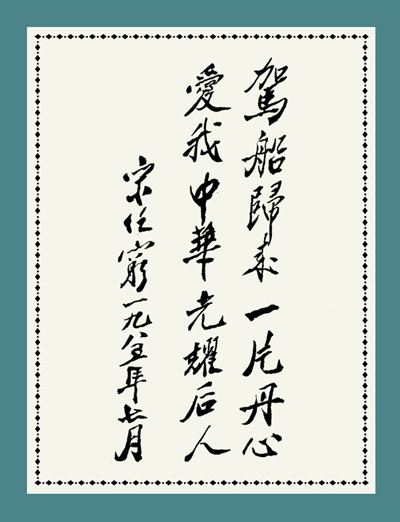 駕船歸來一片丹心
愛我中華光耀后人
宋任窮一九八五年七月